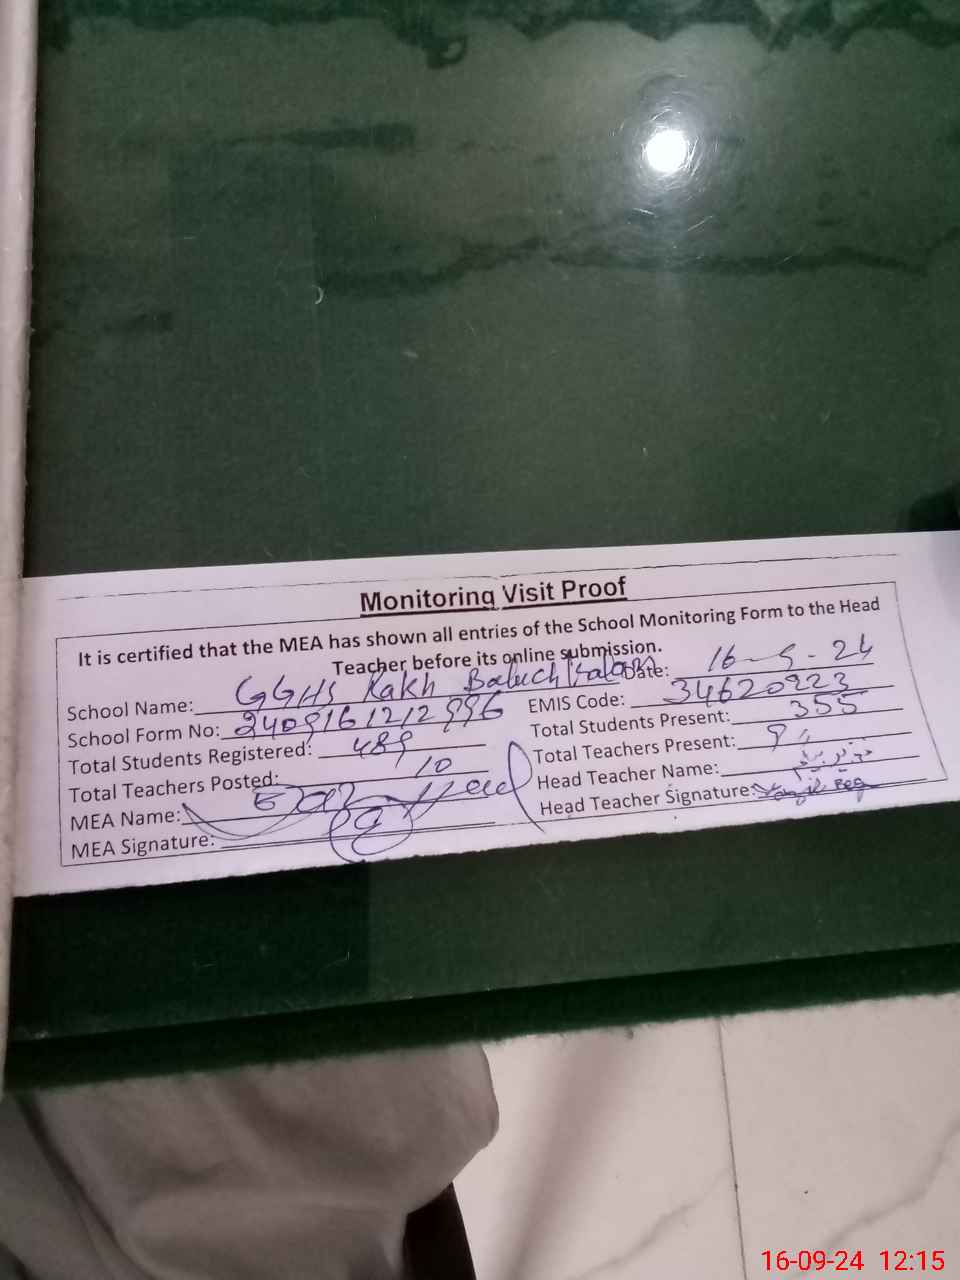 Monitoring Visit Proof
It is certified that the MEA has shown all entries of the School Monitoring Form to the Head
Teacher before its online submission.
School Name: GGHS Kakh Baluch Date: 16-9-24
School Form No: 2409161212996 EMIS Code: 34620223
Total Students Registered: 489 Total Students Present: 355
Total Teachers Posted: 10 Total Teachers Present: 9
MEA Name: Head Teacher Name:
MEA Signature: Head Teacher Signature:
16-09-24 12:15